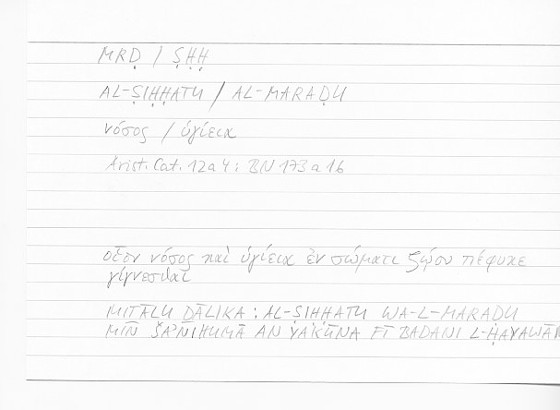 MRḌ / ṢḤḤ
AL-ṢIḤḤATU / AL-MARAḌU
νόσος / ὑγίεια
Arist. Cat. 12a4 : BN 173a16
οἷον νόσος καὶ ὑγίεια ἐν σώματι ζῴου πέφυκε
γίγνεσθαι
MITĀLU ḎĀLIKA : AL-ṢIḤḤATU WA-L-MARAḌU
MIN ŠAʾNIHUMĀ AN YAKŪNA FĪ BADANI L-ḤAYAWĀN